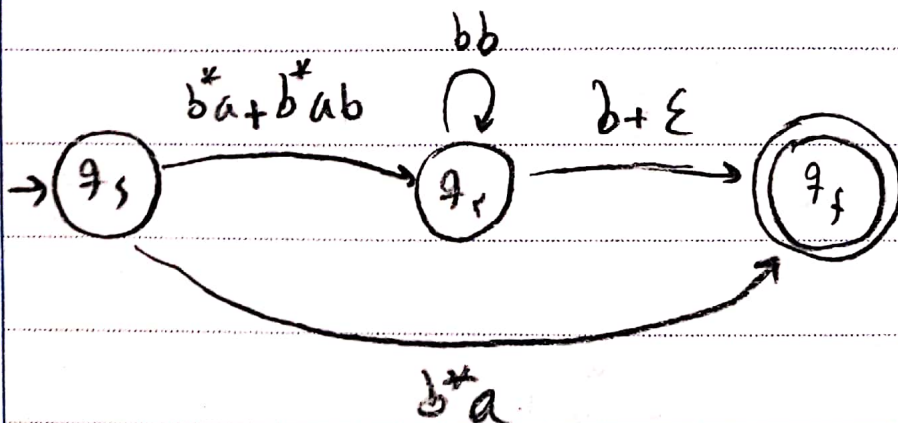 bb
b*a+b*ab
b+ε
qs
qr
qf
b*a